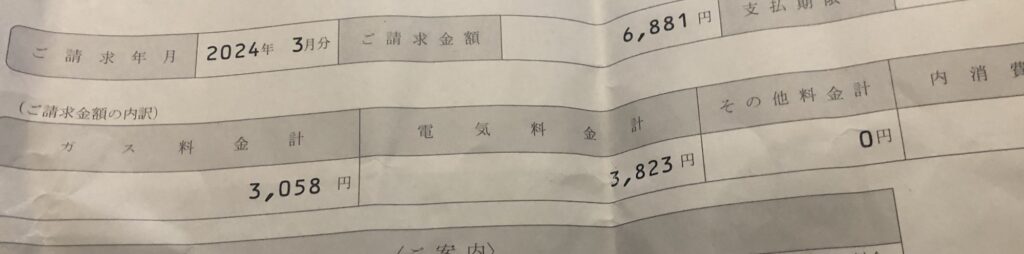 ご請求年月 2024年 3月分 ご請求金額 6,881円 支払期限
(ご請求金額の内訳)
ガス料金計 電気料金計 その他料金計 内消費
3,058円 3,823円 0円
(ご案内)